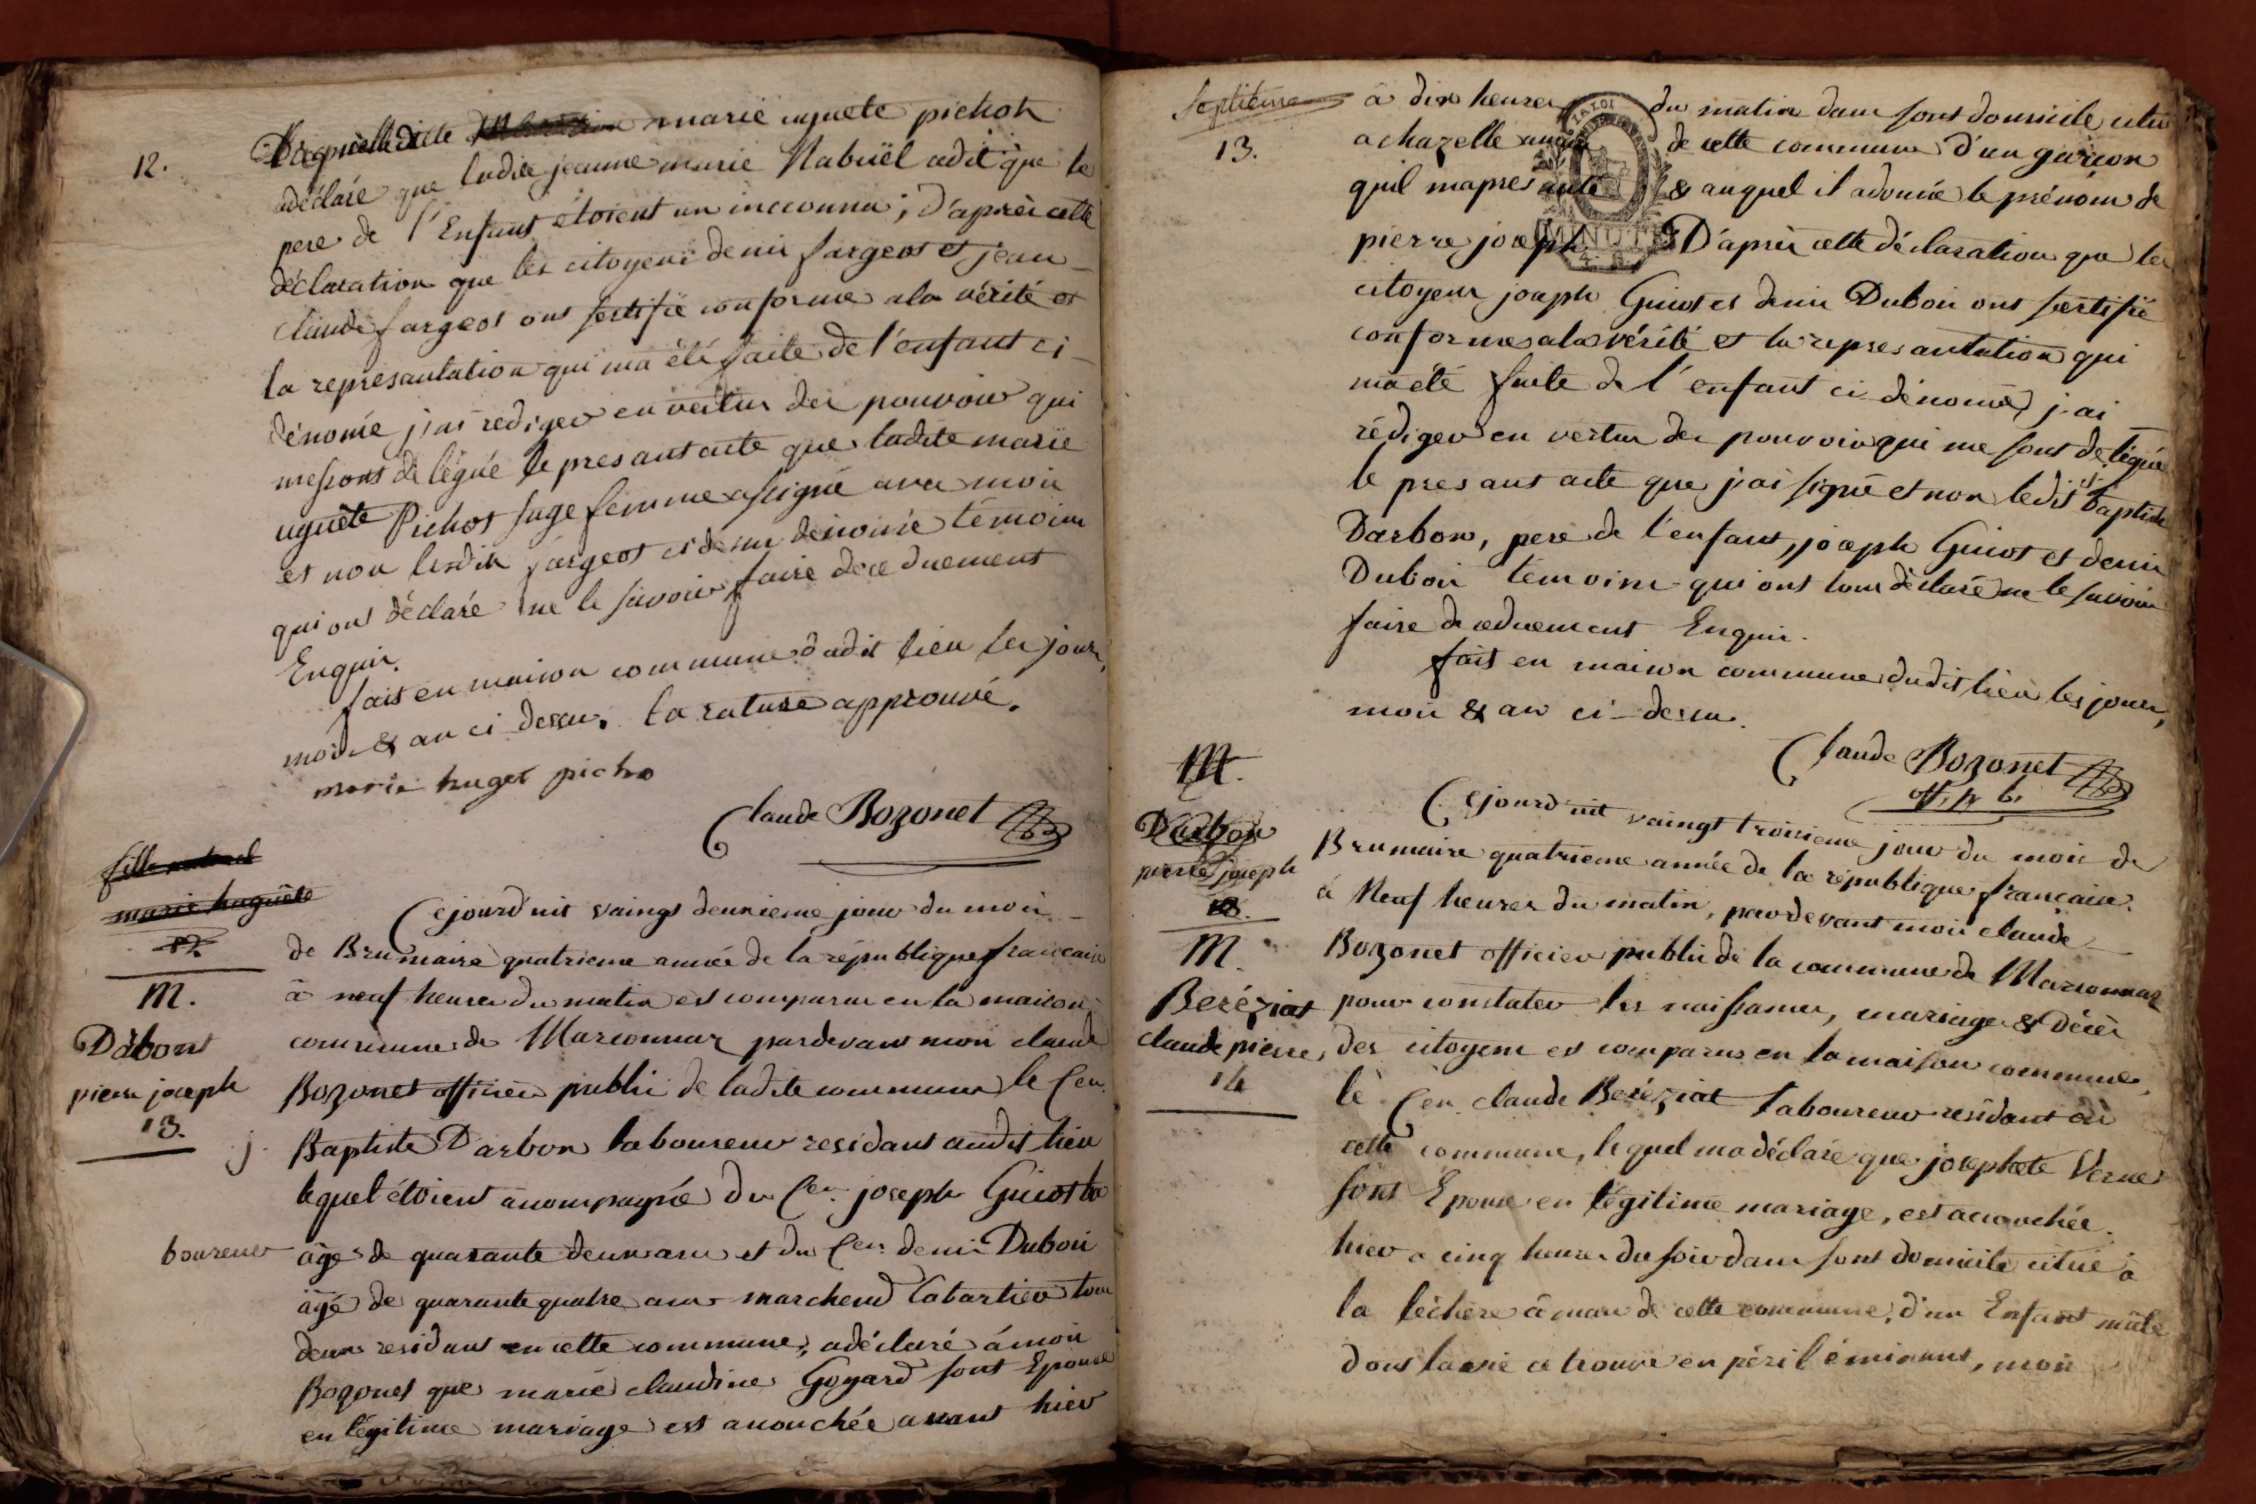 12.
Laquelle ditte marie uguete pichon
adéclaré que ladite jeanne marie Nabuël adit que le
pere de l'Enfant étoient un inconnu; d'après cette
déclaration que les citoyens denis fargeot et jean
claude fargeot ont sertifié conforme ala vérité et
la represantation qui ma été faite de l'enfant ci
dénomé j'ai rediger en vertus des pouvoir qui
me sont délégué le presant acte que ladite marie
uguête Pichot sage femme a signé avec moi
et non lesdits fargeot ci desus dénomé témoins
qui ont déclaré ne le savoir faire de ce duement
Enquis.
fait en maison commune dudit lieu les jour,
mois & an ci dessus. la rature approuvé.
marie huget picho
Claude Bozonet
fille naturel
marie huguête
12.
M.
Darbont
pierre joseph
13.
Cejourd'uit vaingt deuxieme jour du mois
de Brumaire quatrieme année de la république francaise
à neuf heures du matin est comparu en la maison
commune de Marsonnaz pardevant moi claude
Bozonet officier public de ladite commune le Cen.
j. Baptiste Darbon laboureur residant audit lieu
lequel étoient acompagné du Cen. joseph Guiot la
boureur âgé de quarante deux ans et du Cen. denis Dubois
âgé de quarante quatre ans marchend Cabartier tous
deux residant en cette commune, adéclaré à moi
Bozonet que marie claudine Goyard sont Epouse
en légitime mariage est acouchée avant hier
septieme
13.
à dix heures du matin dans sont domicile citué
a chazelle de cette commune d'un garcon
quil mapresanté & auquel il adonné le prénom de
pierre joseph D'après cette déclaration que les
MINUTE
citoyens joseph Guiot et denis Dubois ont sertifié
conforme ala vérité et la represantation qui
ma été faite de l'enfant ci dénomé, j'ai
rédiger en vertus des pouvoir qui me sont délégué
le presant acte que j'ai signé et non ledit j. baptiste
Darbon, pere de l'enfant, joseph Guiot et denis
Dubois témoins qui ont tous déclaré ne le savoir
faire de ce duement Enquis.
fait en maison commune dudit lieu les jours,
mois & an ci-dessus.
Claude Bozonet
off. p. b.
M.
Darbon
pierre joseph
13.
M.
Beréziat
claude pierre,
14
Cejourd'uit vaingt troisieme jour du mois de
Brumaire quatrieme année de la république francaise.
à Neuf heures du matin, pardevant moi claude
Bozonet officier public de la commune de Marsonnaz
pour constater les naissances, mariages & décès
des citoyens est comparu en la maison commune,
le Cen. claude Beréziat laboureur residant en
cette commune, lequel ma déclaré que josephete Verne
sont Epouse en légitime mariage, est acouchée
hier a cinq heures du soir dans sont domicile citué à
la léchere de cette commune, d'un Enfant mâle
dont la vie ce trouve en péril éminant, moi